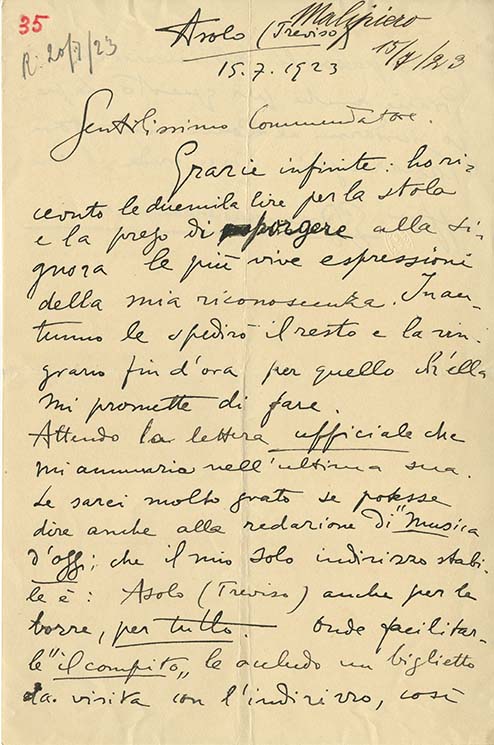 35
Malipiero
R. 20/7/23
Asolo (Treviso)
15/7/23
15.7.1923
Gentilissimo Commendatore.
Grazie infinite: ho ri-
cevuto le duemila lire per la stola
e la prego di porgere alla si-
gnora le più vive espressioni
della mia riconoscenza. In au-
tunno le spedirò il resto e la rin-
grazio fin d'ora per quello ch'ella
mi promette di fare.
Attendo la lettera ufficiale che
mi annunzia nell'ultima sua.
Le sarei molto grato se potesse
dire anche alla redazione di "Musica
d'oggi; che il mio solo indirizzo stabi-
le è: Asolo (Treviso) anche per le
bozze, per tutto. Onde facilitar-
le "il compito„ le accludo un biglietto
da visita con l'indirizzo, così